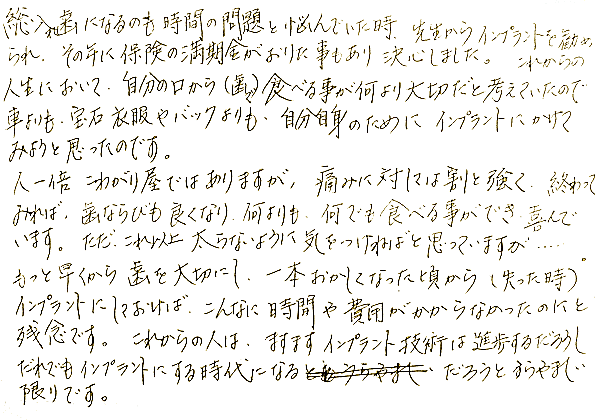 総入れ歯になるのも時間の問題と悩んでいた時、先生からインプラントを勧め
られ、その年に保険の満期金がおりた事もあり決心しました。これからの
人生において、自分の口から(歯で)食べる事が何より大切だと考えていたので
車よりも、宝石衣服やバックよりも、自分自身のためにインプラントにかけて
みようと思ったのです。
人一倍こわがり屋ではありますが、痛みに対しては割と強く、終わって
みれば、歯ならびも良くなり、何よりも、何でも食べる事ができ、喜んで
います。ただ、これ以上太らないように気をつければと思っていますが……。
もっと早くから歯を大切にし、一本おかしくなった頃から(失った時)
インプラントにしておけば、こんなに時間や費用がかからなかったのにと
残念です。これからの人は、ますますインプラント技術は進歩するだろうし
だれでもインプラントにする時代になるだろうとうらやましい
限りです。